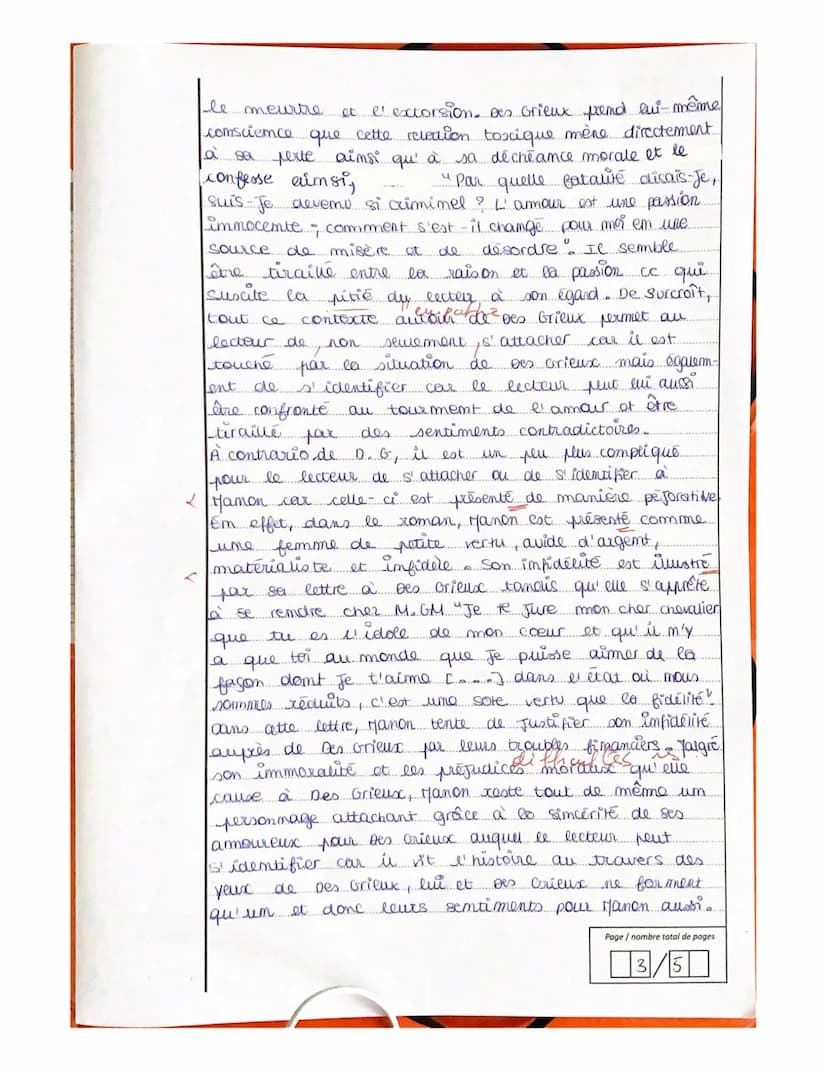 le meurtre et l'excorsion. Des Grieux prend lui-même
conscience que cette relation toxique mène directement
à sa perte ainsi qu'à sa déchéance morale et le
confesse ainsi, "Par quelle fatalité disais-je,
suis-Je devenu si criminel ? L'amour est une passion
innocente ; comment s'est-il changé pour moi en une
source de misère et de désordre". Il semble
être tiraillé entre la raison et la passion ce qui
suscite la pitié du lecteur à son égard. De surcroît,
empathie
tout ce contexte autour de Des Grieux permet au
lecteur de, non seulement, s'attacher car il est
touché par la situation de Des Grieux mais égalem-
ent de s'identifier car le lecteur peut lui aussi
être confronté au tourment de l'amour et être
tiraillé par des sentiments contradictoires.
À contrario de D.G, il est un peu plus compliqué
pour le lecteur de s'attacher ou de s'identifier à
Manon car celle-ci est présenté de manière péjorative
En effet, dans le roman, Manon est présenté comme
une femme de petite vertu, avide d'argent,
matérialiste et infidèle. Son infidélité est illustré
par sa lettre à Des Grieux tandis qu'elle s'apprête
à se rendre chez M.GM "Je te Jure mon cher chevalier
que tu es l'idole de mon coeur et qu'il n'y
a que toi au monde que Je puisse aimer de la
façon dont Je t'aime [....] dans l'état où nous
sommes réduits, c'est une sote vertu que la fidélité"
Dans cette lettre, Manon tente de Justifier son infidélité
auprès de Des Grieux par leurs troubles financiers. Malgré
difficultés
son immoralité et les préjudices moraux qu'elle
cause à Des Grieux, Manon reste tout de même un
personnage attachant grâce à la sincérité de ses
amoureux pour Des Grieux auquel le lecteur peut
s'identifier car il vit l'histoire au travers des
yeux de Des Grieux, lui et Des Grieux ne forment
qu'un et donc leurs sentiments pour Manon aussi.
Page / nombre total de pages
3/5